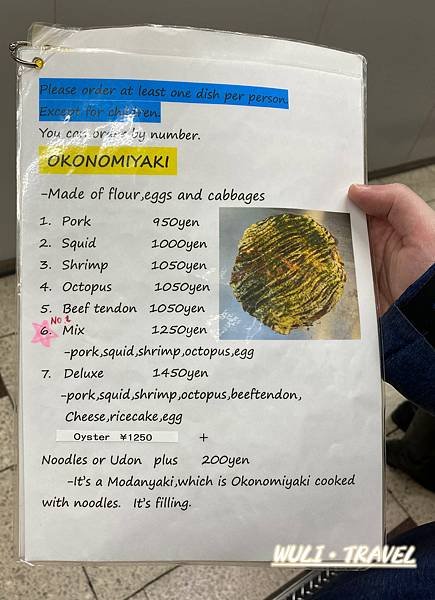 Please order at least one dish per person.
Except for children.
You can order by number.
OKONOMIYAKI
-Made of flour,eggs and cabbages
1. Pork 950yen
2. Squid 1000yen
3. Shrimp 1050yen
4. Octopus 1050yen
5. Beef tendon 1050yen
No.1
6. Mix 1250yen
-pork,squid,shrimp,octopus,egg
7. Deluxe 1450yen
-pork,squid,shrimp,octopus,beeftendon,
Cheese,ricecake,egg
Oyster ¥1250 +
Noodles or Udon plus 200yen
-It's a Modanyaki,which is Okonomiyaki cooked
with noodles. It's filling.
WULI • TRAVEL